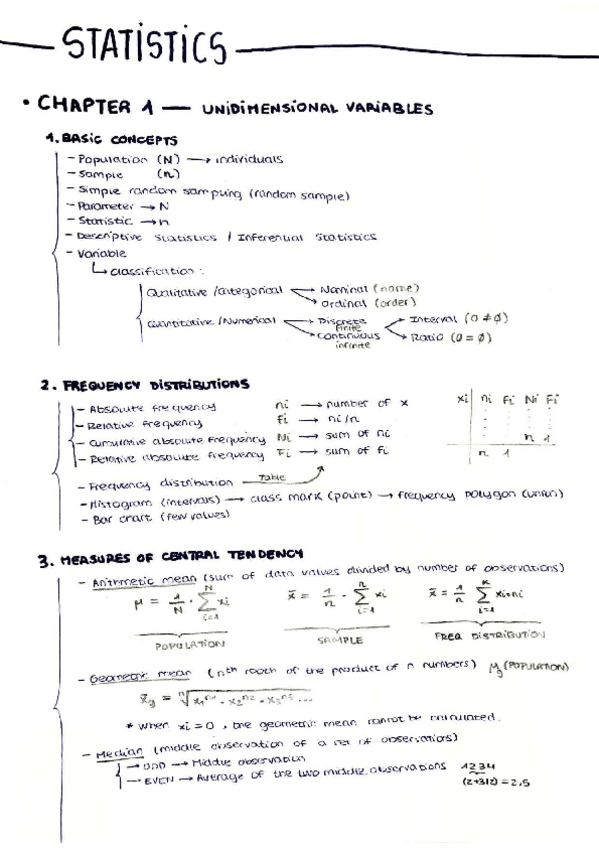 STATISTICS
• CHAPTER 1 — UNIDIMENSIONAL VARIABLES
1. BASIC CONCEPTS
- Population (N) → individuals
- Sample (n)
- Simple random sampling (random sample)
- Parameter → N
- Statistic → n
- Descriptive statistics / Inferential statistics
- Variable
↳ classification:
Qualitative / categorical → Nominal (name)
→ ordinal (order)
Quantitative / Numerical → Discrete finite → Interval (0 ≠ ∅)
→ continuous infinite → Ratio (0 = ∅)
2. FREQUENCY DISTRIBUTIONS
- Absolute frequency ni → number of x
- Relative frequency fi → ni/n
- Cumulative absolute frequency Ni → sum of ni
- Relative absolute frequency Fi → sum of fi
xi ni Fi Ni Fi
n 1
n 1
- Frequency distribution Table
- Histogram (intervals) → class mark (point) → frequency polygon (union)
- Bar chart (few values)
3. MEASURES OF CENTRAL TENDENCY
- Arithmetic mean (sum of data values divided by number of observations)
μ = 1/N · Σ(i=1..N) xi x̄ = 1/n · Σ(i=1..n) xi x̄ = 1/n Σ(i=1..k) xi·ni
POPULATION SAMPLE FREQ DISTRIBUTION
- Geometric mean (nth rooth of the product of n numbers) μg (POPULATION)
x̄g = ⁿ√x₁ⁿ¹ · x₂ⁿ² · x₃ⁿ³ ...
* when xi = 0, the geometric mean cannot be calculated.
- Median (middle observation of a set of observations)
→ ODD → Middle observation
→ EVEN → Average of the two middle observations 1234
(2+3/2) = 2,5